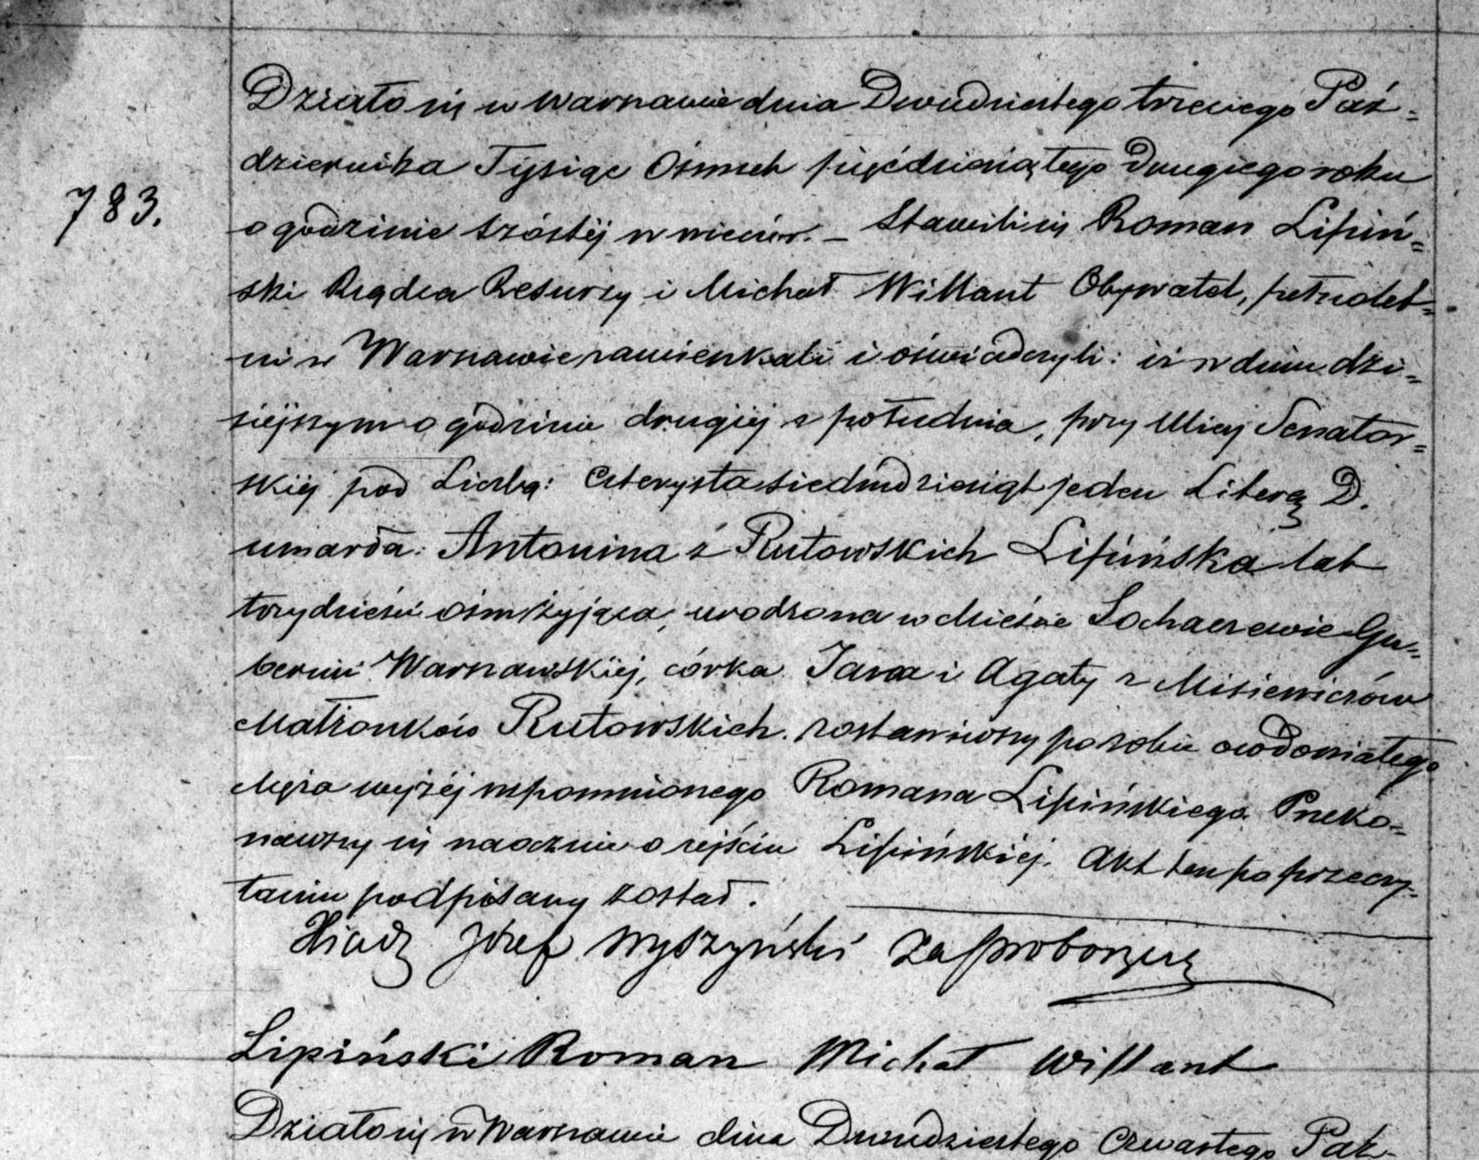 Działo się w Warszawie dnia Dwudziestego trzeciego Paź=
dziernika Tysiąc Ośmset pięćdziesiątego Drugiego roku
783.
o godzinie szóstéj w wieczór. – Stawili się Roman Lipiń=
ski Rządca Resursy i Michał Willant Obywatel, pełnolet=
ni w Warszawie zamieszkali i oświadczyli: iż w dniu dzi=
siejszym o godzinie drugiéj z południa, przy Ulicy Senator=
skiéj pod Liczbą: czterysta siedmdziesiąt jeden Literą D.
umarła: Antonina z Rutowskich Lipińska lat
trzydzieści ośm żyjąca, urodzona w Mieście Sochaczewie Gu=
bernii Warszawskiéj, córka Jana i Agaty z Misiewiczów
Małżonków Rutowskich. zostawiwszy po sobie owdowiałego
Męża wyżéj wspomnionego Romana Lipińskiego. Przeko=
nawszy się naocznie o zejściu Lipińskiéj. Akt ten po przeczy=
taniu podpisany został.
Xiądz Józef Wyszyński za proboszcza
Lipiński Roman Michał Willant
Działo się w Warszawie dnia Dwudziestego Czwartego Paź-